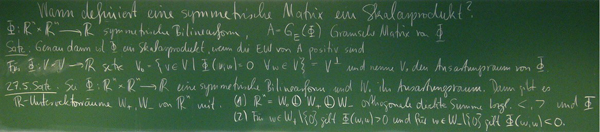 Wann definiert eine symmetrische Matrix ein Skalarprodukt?
Φ: ℝⁿ × ℝⁿ → ℝ symmetrische Bilinearform, A = G_E(Φ) Gramsche Matrix von Φ
Satz. Genau dann ist Φ ein Skalarprodukt, wenn die EW von A positiv sind
Für Φ: V×V → ℝ setze V₀ = {v ∈ V | Φ(v,w) = 0 ∀ w ∈ V} = V^⊥ und nenne V₀ den Ausartungsraum von Φ.
27.5 Satz. Sei Φ: ℝⁿ × ℝⁿ → ℝ eine symmetrische Bilinearform und W₀ ihr Ausartungsraum. Dann gibt es
ℝ-Untervektorräume W₊, W₋ von ℝⁿ mit: (1) ℝⁿ = W₀ ⊕ W₊ ⊕ W₋ orthogonale direkte Summe bzgl. < , > und Φ
(2) Für w ∈ W₊\{0} gilt Φ(w,w) > 0 und für w ∈ W₋\{0} gilt Φ(w,w) < 0.